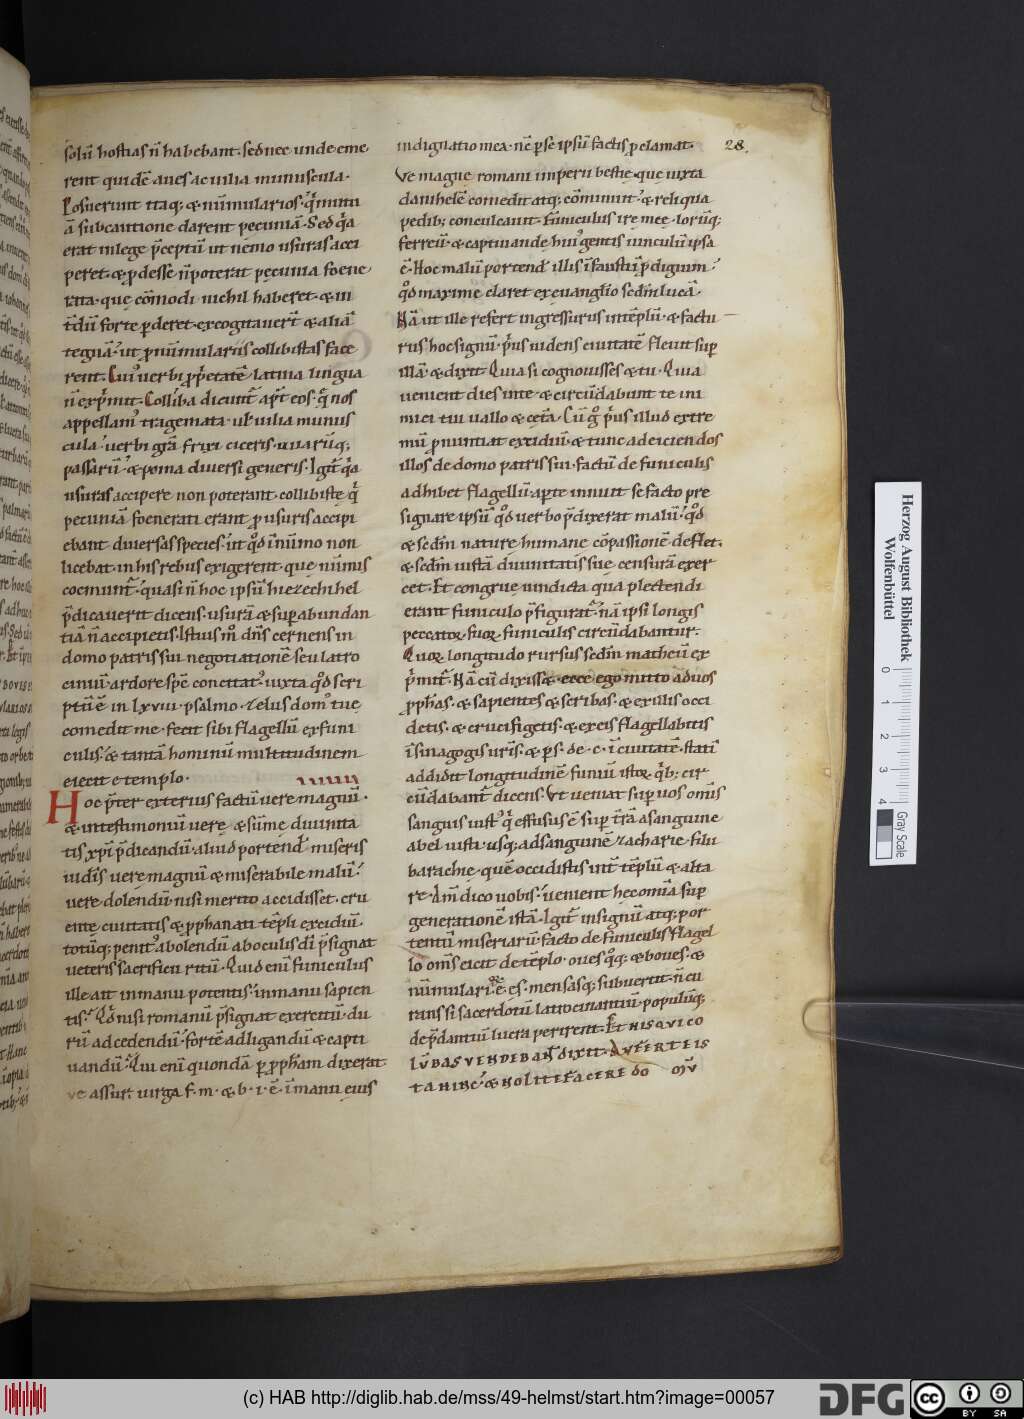 solū hostias n̄ habebant. sed nec unde eme
rent quidē aues ac uilia munuscula.
Posuerunt itaq; & nūmularios. q̄ mutu
ā sub cautione darent pecuniā. Sed q̄a
erat in lege p̄ceptū ut nemo usuras acci
peret. & p̄desse n̄ poterat pecunia foene
rata. que cōmodi nichil haberet. & in
t̄dū forte p̄deret. excogitauer̄t & aliā
tegnā. ut p̄ nūmulariis collibistas face
rent. Cui' uerbi p̄p̄etatē latina lingua
n̄ exp̄mit. Colliba dicunt̄ ap̄t eos. q̄ nos
appellam' tragemata. ut uilia munus
cula. uerbi grā frixi ciceris. uuarūq;
passarū. & poma diuersi generis. Igit̄ q̄a
usuras accipere non poterant. collibiste q̄
pecuniā foenerati erant p̄ usuris accipi
ebant diuersas species. ut q̄d ī nūmo non
licebat. in his rebus exigerent. que nūmis
coemunt̄. quasi n̄ hoc ipsū hiezechihel
p̄dicauerit dicens. usurā & sup̄abundan
tiā n̄ accipietis. Istius m̄ dn̄s cernens in
domo patris sui negotiationē seu latro
cinuū. ardore sp̄c concitat' iuxta q̄d scri
ptū ē in lxviii. psalmo. zelus dom' tue
comedit me. fecit sibi flagellū ex funi
culis. & tantā hominū multitudinem
eiecit e templo.
Hoc p̄ter exterius factū uere magnū.
& in testimoniū uere & sūme diuinita
tis xp̄i p̄dicandū. aliud portend miseris
iudīs uere magnū & miserabile malū.
uere dolendū. nisi merito accidisset. cru
ente ciuitatis & p̄phanati tēpli excidiū.
totūq; penit' abolendū ab oculis dī p̄signat
ueteris sacrificii ritū. Quid enī funiculus
ille ait in manu potentis. in manu sapien
tis. Q̄d nisi romanū p̄signat exercitū. du
rū ad cedendū. fortē ad ligandū & capti
uandū. Qui enī quondā p̄ p̄pham dixerat
ue assur. uirga f. m. & b. i. ē. ī manu eius
indignatio mea. nc̄ p̄ se ipsū factis p̄clamat.
28.
Ve magne romani imperii bestie. que iuxta
danihelē comedit atq; cōminuit. & reliqua
pedib; conculcauit. Funiculus ire mee. lorūq;
ferreū. & captiuande hui' gentis uinculū ipsa
ē. Hoc malū portend illis īfaustū p̄digium.
q̄d maxime claret ex euanglio sedm̄ lucā.
Nā ut ille refert ingressurus in tēplū. & factu
rus hoc signū. p̄us uidens ciuitatē fleuit sup̄
illā. & dixit. Quia si cognouisses & tu. Quia
uenient dies in te. & circūdabunt te ini
mici tui uallo & ceta. Cū ḡ p̄us illud extre
mū p̄nuntiat excidiū. & tunc ad eiciendos
illos de domo patris sui. factū de funiculis
adhibet flagellū. ap̄te innuit se facto pre
signare ipsū q̄d uerbo p̄dixerat malū. q̄d
& sedm̄ nature humane cōpassionē deflet.
& sedm̄ iustā diuinitatis sue censurā exer
cet. Et congrue uindicta qua plectendi
erant funiculo p̄figurat̄. nā ipsi longis
peccator suor funiculis circūdabantur.
Quor longitudo rursus sedm̄ matheū ex
p̄mit̄. Nā cū dixisset. ecce ego mitto ad uos
p̄phas. & sapientes & scribas. & ex illis occi
detis. & crucifigetis. & ex eis flagellabitis
ī sinagogis uris. & p̄s. de. c. ī ciuitatē. statī
addidit longitudinē funiū istor. q̄b; cir
cūdabant̄ dicens. Vt ueniat sup̄ uos omīs
sanguis iust' q̄ effusus ē sup̄ trā a sanguine
abel iusti usq; ad sanguinē zacharie filii
barachie. quē occidistis int̄ tēplū & alta
re. Am̄ dico uobis. uenient hec omīa sup̄
generationē istā. Igit̄ in signū atq; por
tentū miseriarū. facto de funiculis flagel
lo om̄s eicit de tēplo. oues q̄q; & boues. &
nūmulari ēs. mensasq; subuertit. n̄ cu
rans si sacerdotū latrocinantiū. populūq;
de p̄dantiū lucra perirent. Et HIS QVI CO
LŪBAS VENDEBANT dixit. AVFERTE IS
TA HINC. & NOLITE FACERE DO MŪ
Herzog August Bibliothek
Wolfenbüttel
0 1 2 3 4
Gray Scale
(c) HAB http://diglib.hab.de/mss/49-helmst/start.htm?image=00057
DFG
cc BY SA